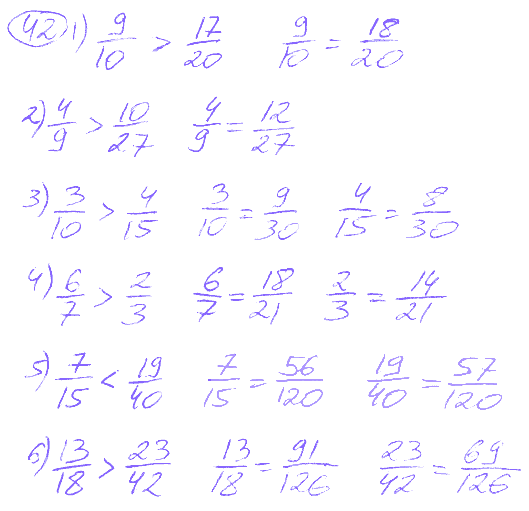 42 1) 9/10 > 17/20 9/10 = 18/20
2) 4/9 > 10/27 4/9 = 12/27
3) 3/10 > 4/15 3/10 = 9/30 4/15 = 8/30
4) 6/7 > 2/3 6/7 = 18/21 2/3 = 14/21
5) 7/15 < 19/40 7/15 = 56/120 19/40 = 57/120
6) 13/18 > 23/42 13/18 = 91/126 23/42 = 69/126